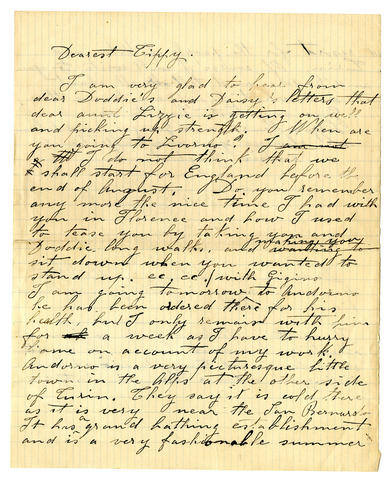 Dearest Tippy.
I am very glad to hear from
dear Doddie's and Daisy's letters that
dear aunt Lizzie is getting on well
and picking up strength. When are
you going to Livorno? I am not
I do not think that we
shall start for England before the
end of August. Do you remember
any more the nice time I had with
you in Florence and how I used
to tease you by taking you and
Doddie long walks, and making you
sit down when you wanted to
stand up. ec, ec, (with Gigino
I am going tomorrow to Andorno
he has been ordered there for his
health, but I only remain with him
for a week as I have to hurry
home on account of my work.
Andorno is a very picturesque little
town in the Alps at the other side
of Turin. They say it is cold there
as it is very near the San Bernardo
It has a grand bathing establishment
and is a very fashionable summer